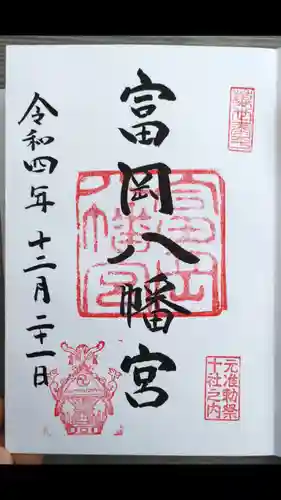 富岡八幡宮
元准勅祭
十社之内
令和四年十二月二十一日